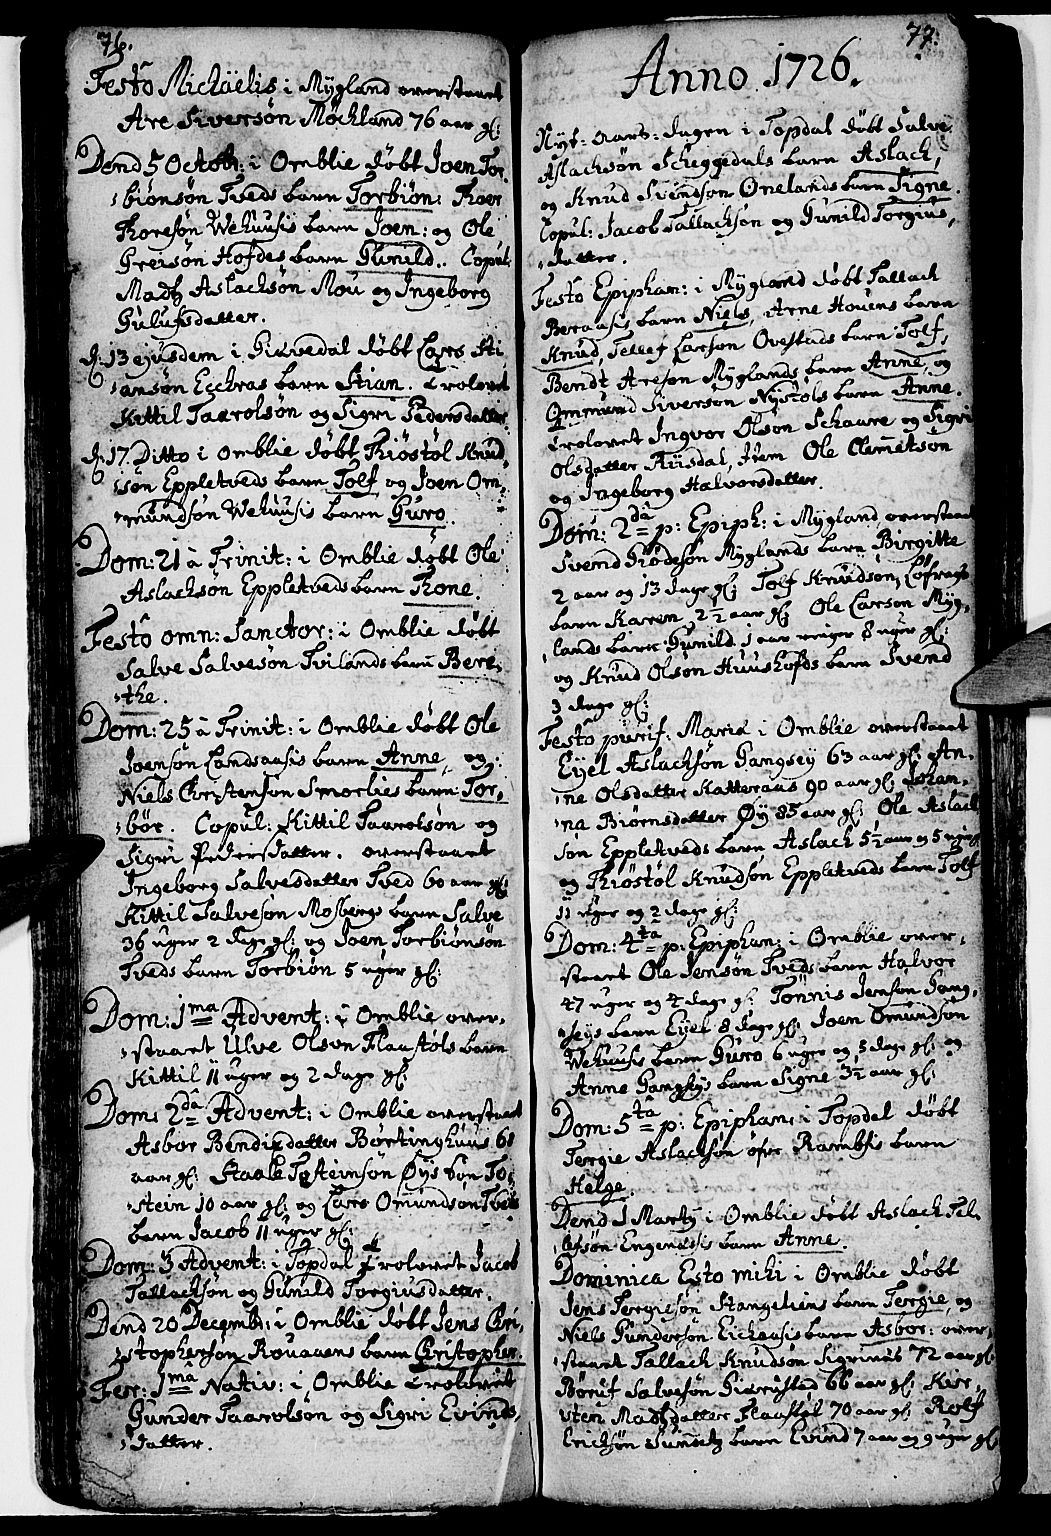 76.
Festo Michaëlis i Mygland overstaaet
Are Siversøn Møckland 76 aar gl:
Dend 5 Octobr: i Omblie døbt Joen Tor-
biønsøn Tveds barn Torbiøn: Thoer
Thoresøn Wehuusis barn Joem: og Ole
Greisøn Hofdes barn Gunild. Copul:
Madtz Aslachsøn Mou og Ingeborg
Gulufsdatter.
d: 13 ejusdem i Giøvedal døbt Lars Sti
ansøn Eccheas barn Stian. Trolovet
Kittil Taarolsøn og Sigri Pedersdatter
d: 17. Ditto i Omblie døbt Thiøstøl Knud-
søn Eppletveds barn Tolf og Joen Om-
mundsøn Wehuusis barn Guro.
Dom: 21 à Trinit: i Omblie døbt Ole
Aslachsøn Eppletveds barn Thone.
Festo omn: Sanctor: i Omblie døbt
Salve Salvesøn Tvilands barn Bere-
the.
Dom: 25 à Trinit: i Omblie døbt Ole
Joensøn Landsaasis barn Anne, og
Niels Christensøn Smorlies barn Tor-
bør. Copul: Kittil Taarolsøn og
Sigri Pedersdatter. overstaaet
Ingeborg Salvesdatter Tved 60 aar gl:
Kittil Salvesøn Mosbergs barn Salve
36 uger 2 dage gl: og Joen Torbiønsøn
Tveds barn Torbiøn 5 uger gl:
Dom: 1ma Advent: i Omblie over-
staaet Ulve Olsøn Flaastøls barn
Kittil 11 uger og 2 dage gl:
Dom: 2da Advent: i Omblie overstaaet
Asbor Bendixdatter Børtinghuus 60
aar gl: Staale Tosteinsøn Øys søn To-
stein 10 aar gl: og Lars Omundsøn Tveds
barn Jacob 11 uger gl:
Dom: 3 Advent: i Topdal Trolovet Jacob
Tallachsøn og Gunild Torgiusdatter.
Dend 20 Decembr: i Omblie døbt Jens Chri-
stophersøn Rouaaens barn Christopher.
Fer: 1ma Nativ: i Omblie Trolovet
Gunder Taarolsøn og Sigri Evinds-
datter.
77.
Anno 1726.
Nyt-aars-dagen i Topdal døbt Salve
Aslachsøn Scheggedals barn Aslach,
og Knud Svendsøn Onelands barn Signe.
Copul: Jacob Tallachsøn og Gunild Torgius-
datter.
Festo Epiphan: i Mygland døbt Tallach
Beraasis barn Niels, Arne Houens barn
Knud, Tellef Larsøn Ovestads barn Tolf,
Bendt Aresøn Myglands barn Anne, og
Ommund Siversøn Nystøls barn Anne.
Trolovet Ingvor Olsøn Schaare og Sigri
Olsdatter Riisdal, Item Ole Clemetsøn
og Ingeborg Halvorsdatter.
Dom: 2da p: Epiph: i Mygland overstaaet
Svend Rodesøn Myglands barn Birgitte
2 aar og 13 dage gl: Tolf Knudsøn
barn Karen 2½ aar gl: Ole Larsøn Myg-
lands barn Gunild 1 aar ringer 8 uger gl:
og Knud Olsøn Huushofds barn Svend
3 dage gl:
Festo purif: Mariæ i Omblie overstaaet
Eyel Aslachsøn Gangsey 63 aar gl: An-
ne Olsdatter Katteraas 90 aar gl: Johan-
na Biørnsdatter Øy 85 aar gl: Ole Aslach
søn Eppletveds barn Aslach 5½ aar og 5 uger
og Thiøstøl Knudsøn Eppletveds barn Tolf
11 uger og 2 dage gl:
Dom: 4ta p: Epiphan: i Omblie over-
staaet Ole Jensøn Tveds barn Halvor
47 uger og 4 dage gl: Tønnis Jensøn Gang-
seys barn Eyel 8 dage gl: Joen Omundsøn
Wehuusis barn Guro 6 uger og 5 dage gl: og
Anne Gangseys barn Signe 3½ aar gl:
Dom: 5ta p: Epiphan: i Topdal døbt
Tergie Aslachsøn øfre Ramsis barn
Helge.
Dend 1 Martij i Omblie døbt Aslach Tel-
lefsøn Engenæsis barn Anne.
Dominica Esto mihi i Omblie døbt
Jens Tergiesøn Stangeliens barn Tergie, og
Niels Gundersøn Eichaasis barn Asbor: over-
staaet Tallach Knudsøn Sigrinæs 72 aar gl:
Børuf Salvesøn Giævestad 66 aar gl: Kier-
sten Madtzdatter Flaastøl 70 aar gl: Rolf
Erichsøn barn Evind 7 aar og 9 uger gl: